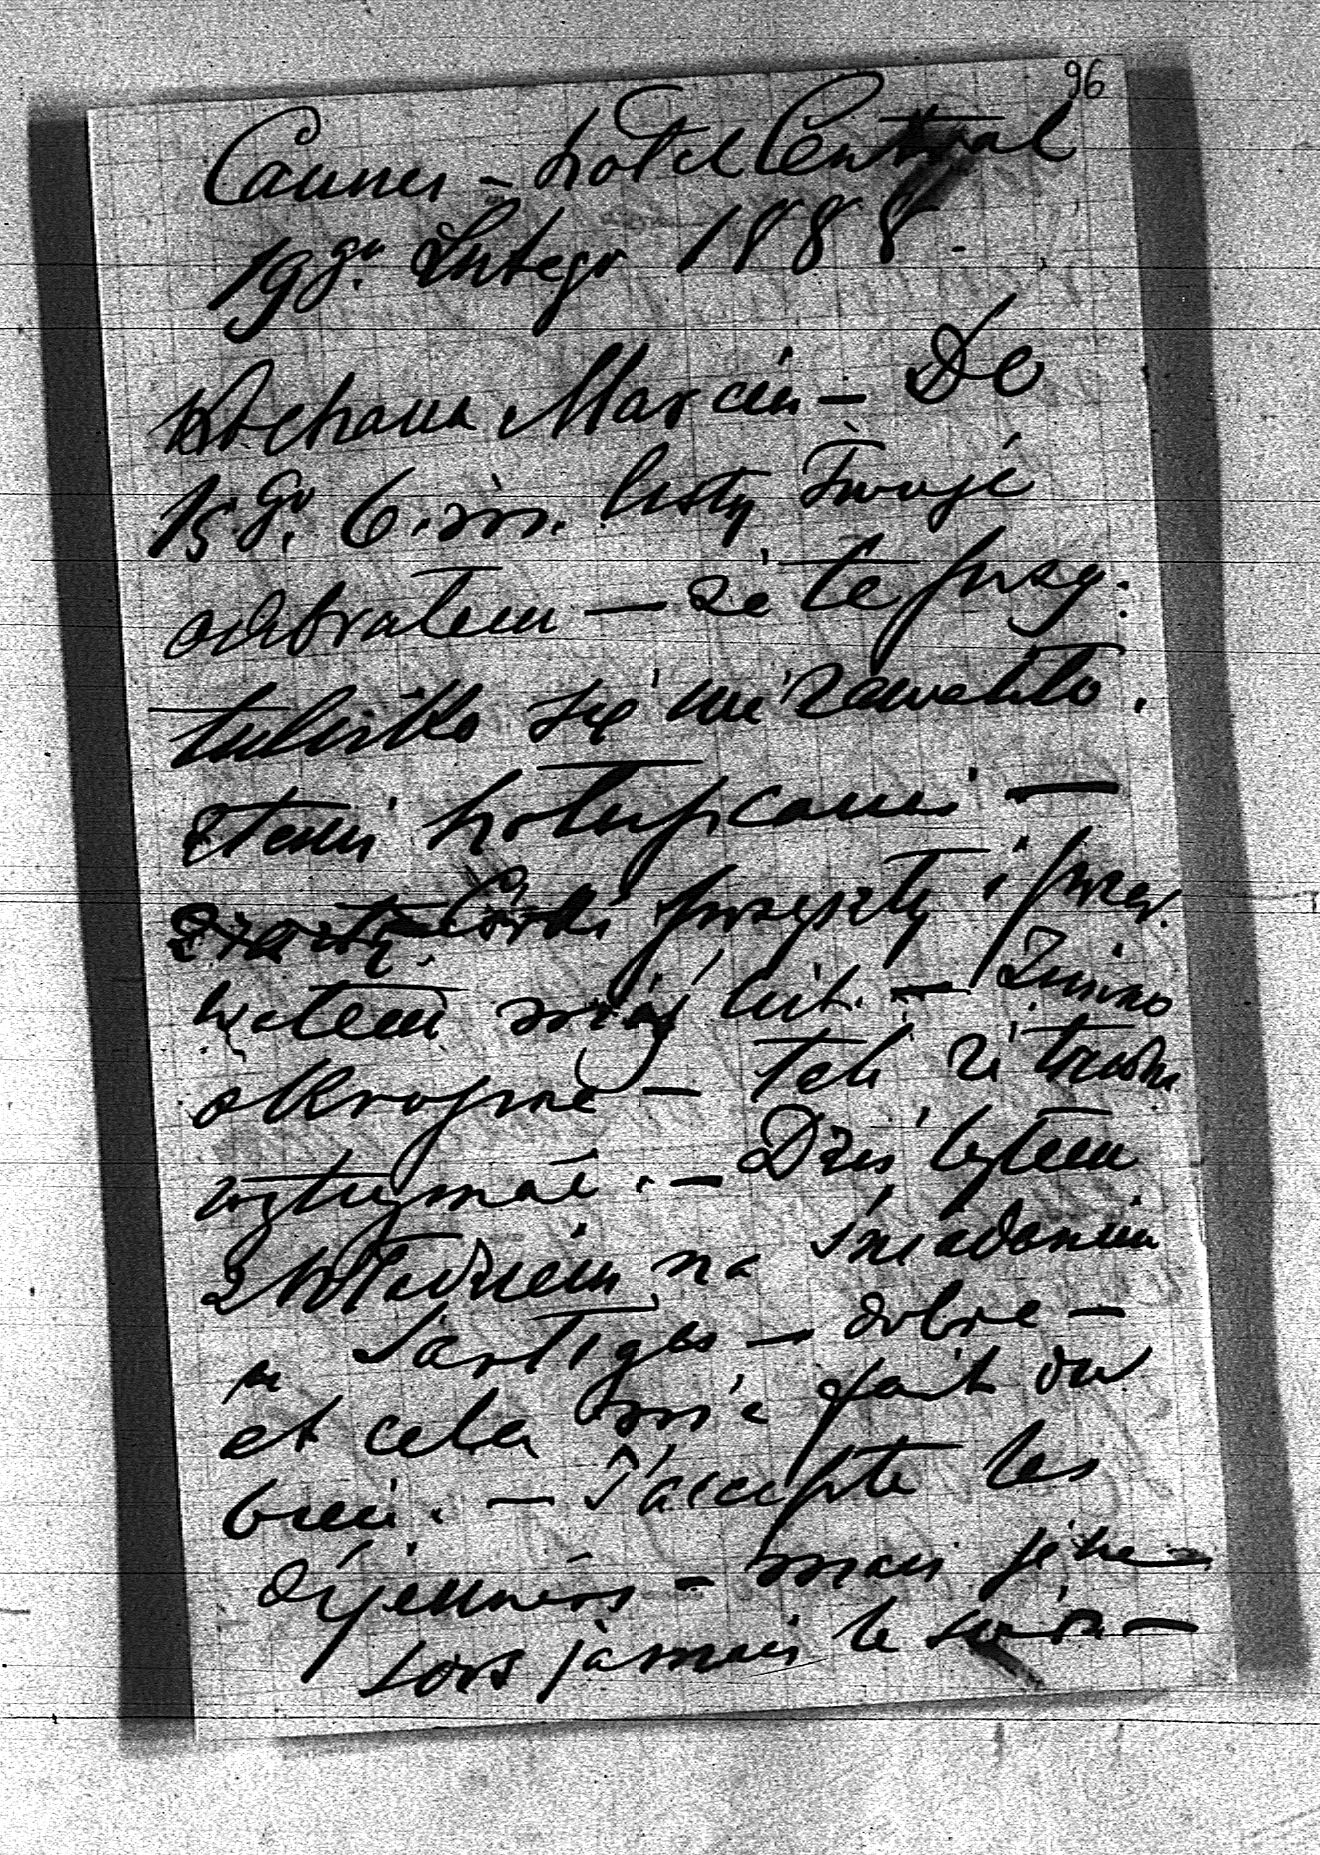 96
Cannes – hotel Central
19go. Lutego 1888.
Kochana Marciu – Do
15.go. b. m. listy Twoje
odebrałem – że te przy:
tulisko się nie zawaliło.
z temi hołupcami –
przeszły i prze
mój list. – Zimno
okropne – tak że trudno
wytrzymać. – Dziś byłem
z Władziem na śniadaniu
u Sartiges – dobre –
et cela m'a fait du
bien. – J'accepte les
déjeuners – mais je ne
sors jamais le soir –